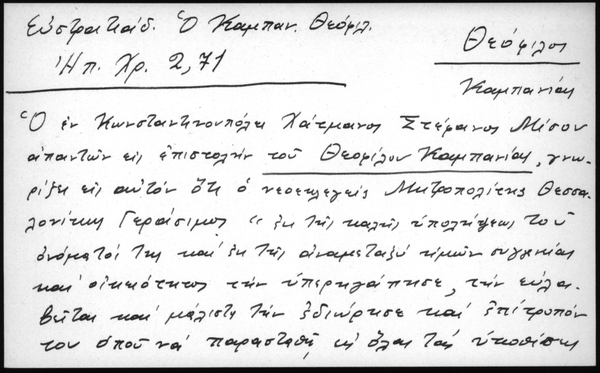 Εὐστρατιάδ. Ὁ Καμπαν. Θεόφιλ.
Ἠπ. Χρ. 2, 71
Θεόφιλος
Καμπανίας
Ὁ ἐν Κωνσταντινουπόλει Χάτμανος Στέφανος Μίσου
ἀπαντῶν εἰς ἐπιστολὴν τοῦ Θεοφίλου Καμπανίας, γνω-
ρίζει εἰς αὐτὸν ὅτι ὁ νεοεκλεγεὶς Μητροπολίτης Θεσσα-
λονίκης Γεράσιμος " ἐκ τῆς καλῆς ὑπολήψεως τοῦ
ὀνόματός της καὶ ἐκ τῆς ἀναμεταξὺ ἡμῶν συγγενείας
καὶ οἰκειότητος τὴν ὑπερηγάπησε, τὴν εὐλα-
βεῖται καὶ μάλιστα τὴν ἐδιώρησε καὶ ἐπίτροπόν
του ὁποῦ νὰ παρασταθῇ εἰς ὅλας τὰς ὑποθέσεις